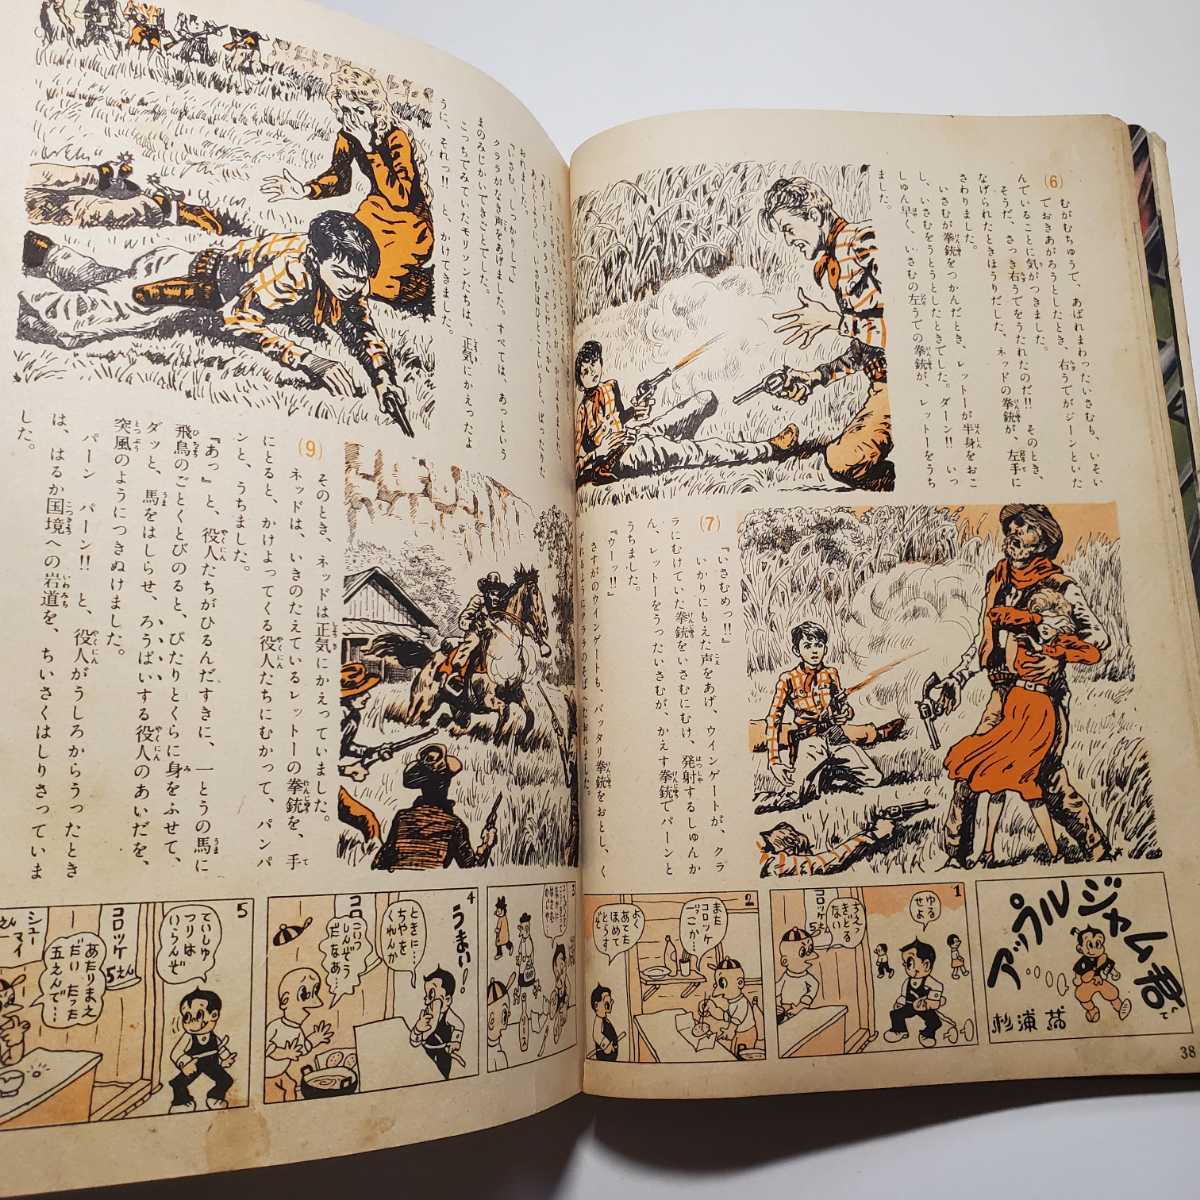 (6)
むがむちゅうで、あばれまわったいさむも、いそい
でおきあがろうとしたとき、右うでがジーンといた
んでいることに気がつきました。
そうだ、さっき右うでをうたれたのだ!! そのとき、
なげられたときほうりだした、ネッドの拳銃が、左手に
さわりました。
いさむが拳銃をつかんだとき、レットーが半身をおこ
し、いさむをうとうとしたときでした。ダーン!! いっ
しゅん早く、いさむの左うでの拳銃が、レットーをうち
ました。
(7)
『いさむめっ!!』
いかりにもえた声をあげ、ウインゲートが、クラ
ラにむけていた拳銃をいさむにむけ、発射するしゅんか
ん、レットーをうったいさむが、かえす拳銃でパーンと
うちました。
『ウーッ!!』
さすがのウインゲートも、バッタリ拳銃をおとし、く
『いさむ、しっかりして』
クララがなき声をあげました。すべては、あっという
まのみじかいできごとでした。
こっちでみていたモリソンたちは、正気にかえったよ
うに、それっ!! と、かけてきました。
(9)
そのとき、ネッドは正気にかえっていました。
ネッドは、いきのたえているレットーの拳銃を、手
にとると、かけよってくる役人たちにむかって、パンパ
ンと、うちました。
『あっ』と、役人たちがひるんだすきに、一とうの馬に
飛鳥のごとくとびのると、ぴたりとくらに身をふせて、
ダッと、馬をはしらせ、ろうばいする役人のあいだを、
突風のようにつきぬけました。
パーン パーン!! と、役人がうしろからうったとき
は、はるか国境への岩道を、ちいさくはしりさっていま
した。
アップルジャム君
杉浦茂
1
ゆる
せよ
コロッケ
5えん
2
また
コロッケ
一こか…
よく
あてた
ほめて
とらす
3
4
うまい!
ときに…
ちゃを
くれんか
こいつ
しんぞう
だなあ
コロッケ
5
ていしゅ
つりは
いらんぞ
あたりまえ
だい たった
五えんで…
コロッケ
5えん
シュー
マイ
38